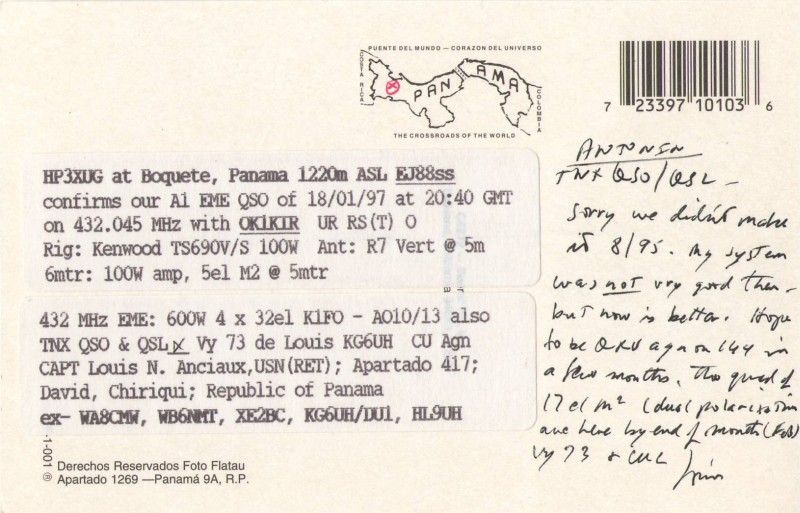 PUENTE DEL MUNDO — CORAZON DEL UNIVERSO
COSTA RICA
PANAMA
COLOMBIA
THE CROSSROADS OF THE WORLD
7 23397 10103 6
HP3XUG at Boquete, Panama 1220m ASL EJ88ss
confirms our A1 EME QSO of 18/01/97 at 20:40 GMT
on 432.045 MHz with OK1KIR UR RS(T) O
Rig: Kenwood TS690V/S 100W Ant: R7 Vert @ 5m
6mtr: 100W amp, 5el M2 @ 5mtr
432 MHz EME: 600W 4 x 32el K1FO - AO10/13 also
TNX QSO & QSL X Vy 73 de Louis KG6UH CU Agn
CAPT Louis N. Anciaux,USN(RET); Apartado 417;
David, Chiriqui; Republic of Panama
ex- WA8CMW, WB6NMT, XE2BC, KG6UH/DU1, HL9UH
1-001 ®
Derechos Reservados Foto Flatau
Apartado 1269 —Panamá 9A, R.P.
ANTONIN
TNX QSO/QSL —
Sorry we didn't make
it 8/95. My system
was not vry good then -
but now is better. Hope
to be QRV agn on 144 in
a few months. The quad of
17el M² (dual polarization
are here by end of month (Feb)
Vy 73 & CUL Louis